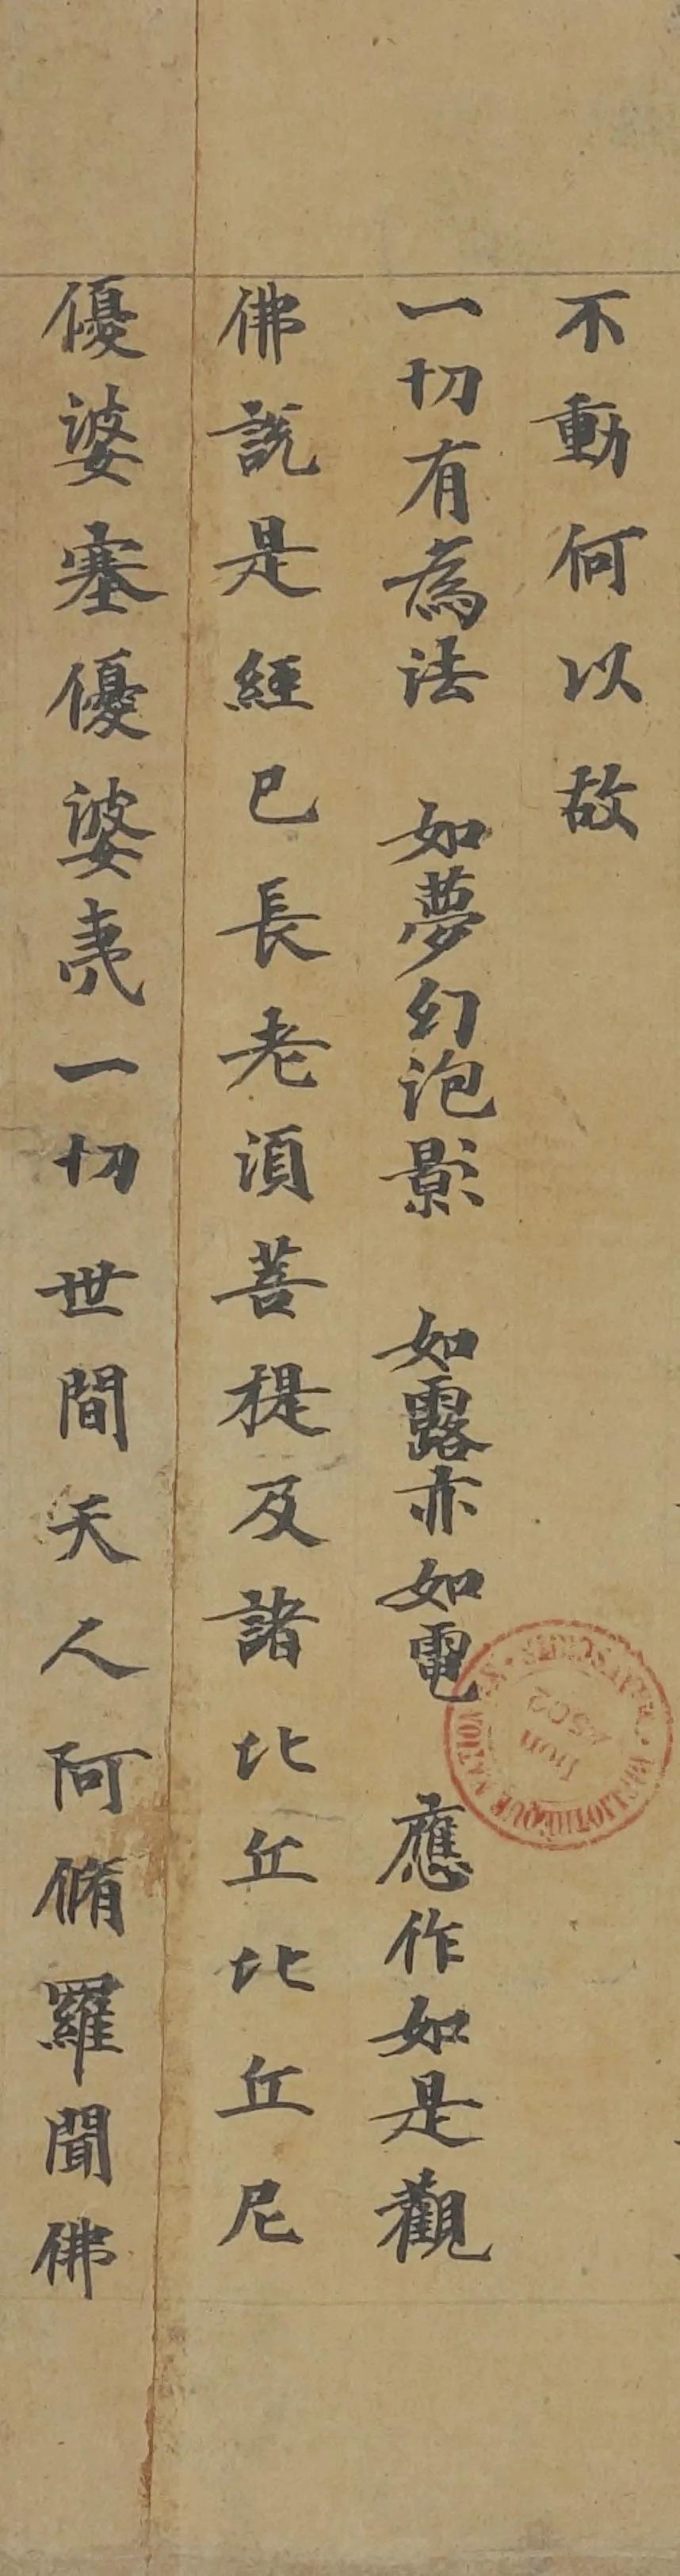 不動何以故
一切有為法　如夢幻泡影　如露亦如電　應作如是觀
佛說是經已長老須菩提及諸比丘比丘尼
優婆塞優婆夷一切世間天人阿脩羅聞佛